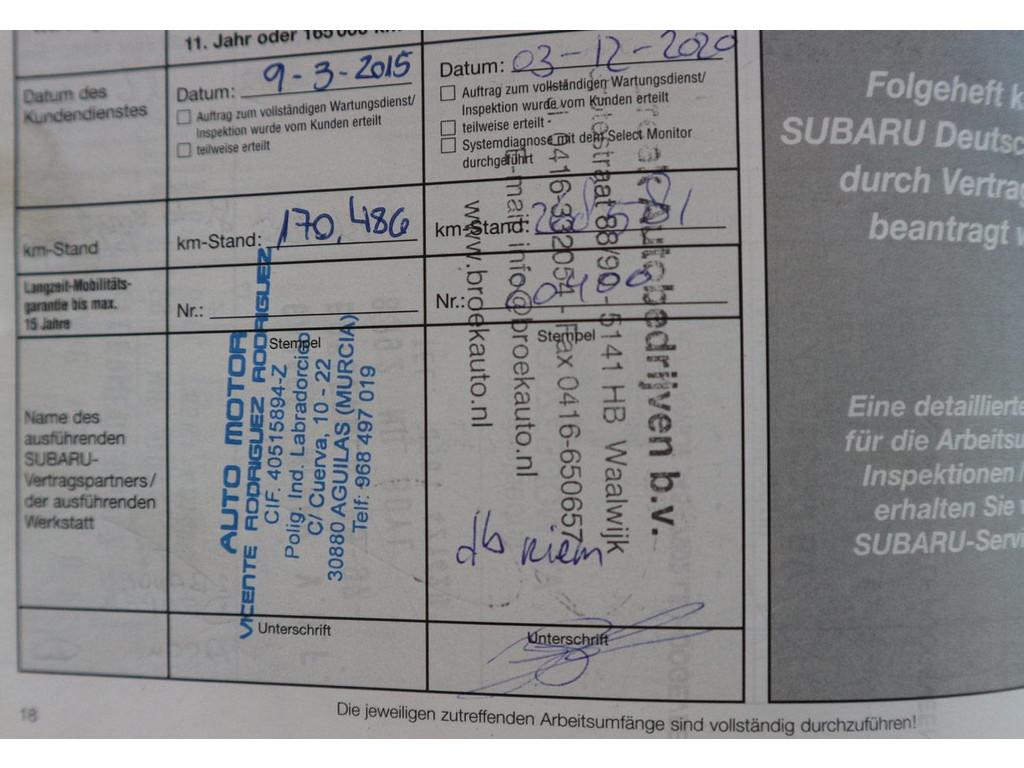 11. Jahr oder 165 000 km
Datum des
Kundendienstes
Datum: 9-3-2015
Auftrag zum vollständigen Wartungsdienst/
Inspektion wurde vom Kunden erteilt
teilweise erteilt
Datum: 03-12-2020
Auftrag zum vollständigen Wartungsdienst/
Inspektion wurde vom Kunden erteilt
teilweise erteilt
Systemdiagnose mit dem Select Monitor
durchgeführt
km-Stand
km-Stand: 170.486
km-Stand:
Langzeit-Mobilitäts-
garantie bis max.
15 Jahre
Nr.:
Nr.:
Name des
ausführenden
SUBARU-
Vertragspartners/
der ausführenden
Werkstatt
Stempel
AUTO MOTOR
VICENTE RODRIGUEZ RODRIGUEZ
CIF. 40515894-Z
Polig. Ind. Labradorcico
C/ Cuerva, 10 - 22
30880 AGUILAS (MURCIA)
Telf: 968 497 019
Stempel
Autobedrijven b.v.
88/90 - 5141 HB Waalwijk
0416-332054 - Fax 0416-650657
E-mail: info@broekauto.nl
www.broekauto.nl
db riem
Unterschrift
Unterschrift
18
Die jeweiligen zutreffenden Arbeitsumfänge sind vollständig durchzuführen!
Folgeheft k
SUBARU Deutsc
durch Vertrag
beantragt w
Eine detaillierte
für die Arbeitsu
Inspektionen
erhalten Sie
SUBARU-Servi